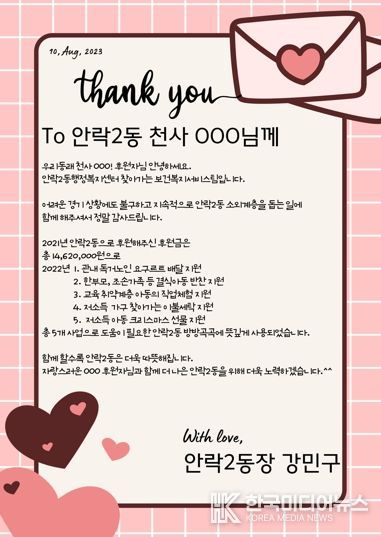 10, Aug, 2023
thank you
To 안락2동 천사 OOO님께
우리동래 천사 OOO! 후원자님 안녕하세요.
안락2동행정복지센터 찾아가는 보건복지서비스팀입니다.
어려운 경기 상황에도 불구하고 지속적으로 안락2동 소외계층을 돕는 일에
함께 해주셔서 정말 감사드립니다.
2021년 안락2동으로 후원해주신 후원금은
총 14,620,000원으로
2022년 1. 관내 독거노인 요구르트 배달 지원
2. 한부모, 조손가족 등 결식아동 반찬 지원
3. 교육 취약계층 아동의 직업체험 지원
4. 저소득 가구 찾아가는 이불세탁 지원
5. 저소득 아동 크리스마스 선물 지원
총 5개 사업으로 도움이 필요한 안락2동 방방곡곡에 뜻깊게 사용되었습니다.
함께 할수록 안락2동은 더욱 따뜻해집니다.
자랑스러운 OOO 후원자님과 함께 더 나은 안락2동을 위해 더욱 노력하겠습니다.^^
With love,
안락2동장 강민구
한국미디어뉴스
KOREA MEDIA NEWS